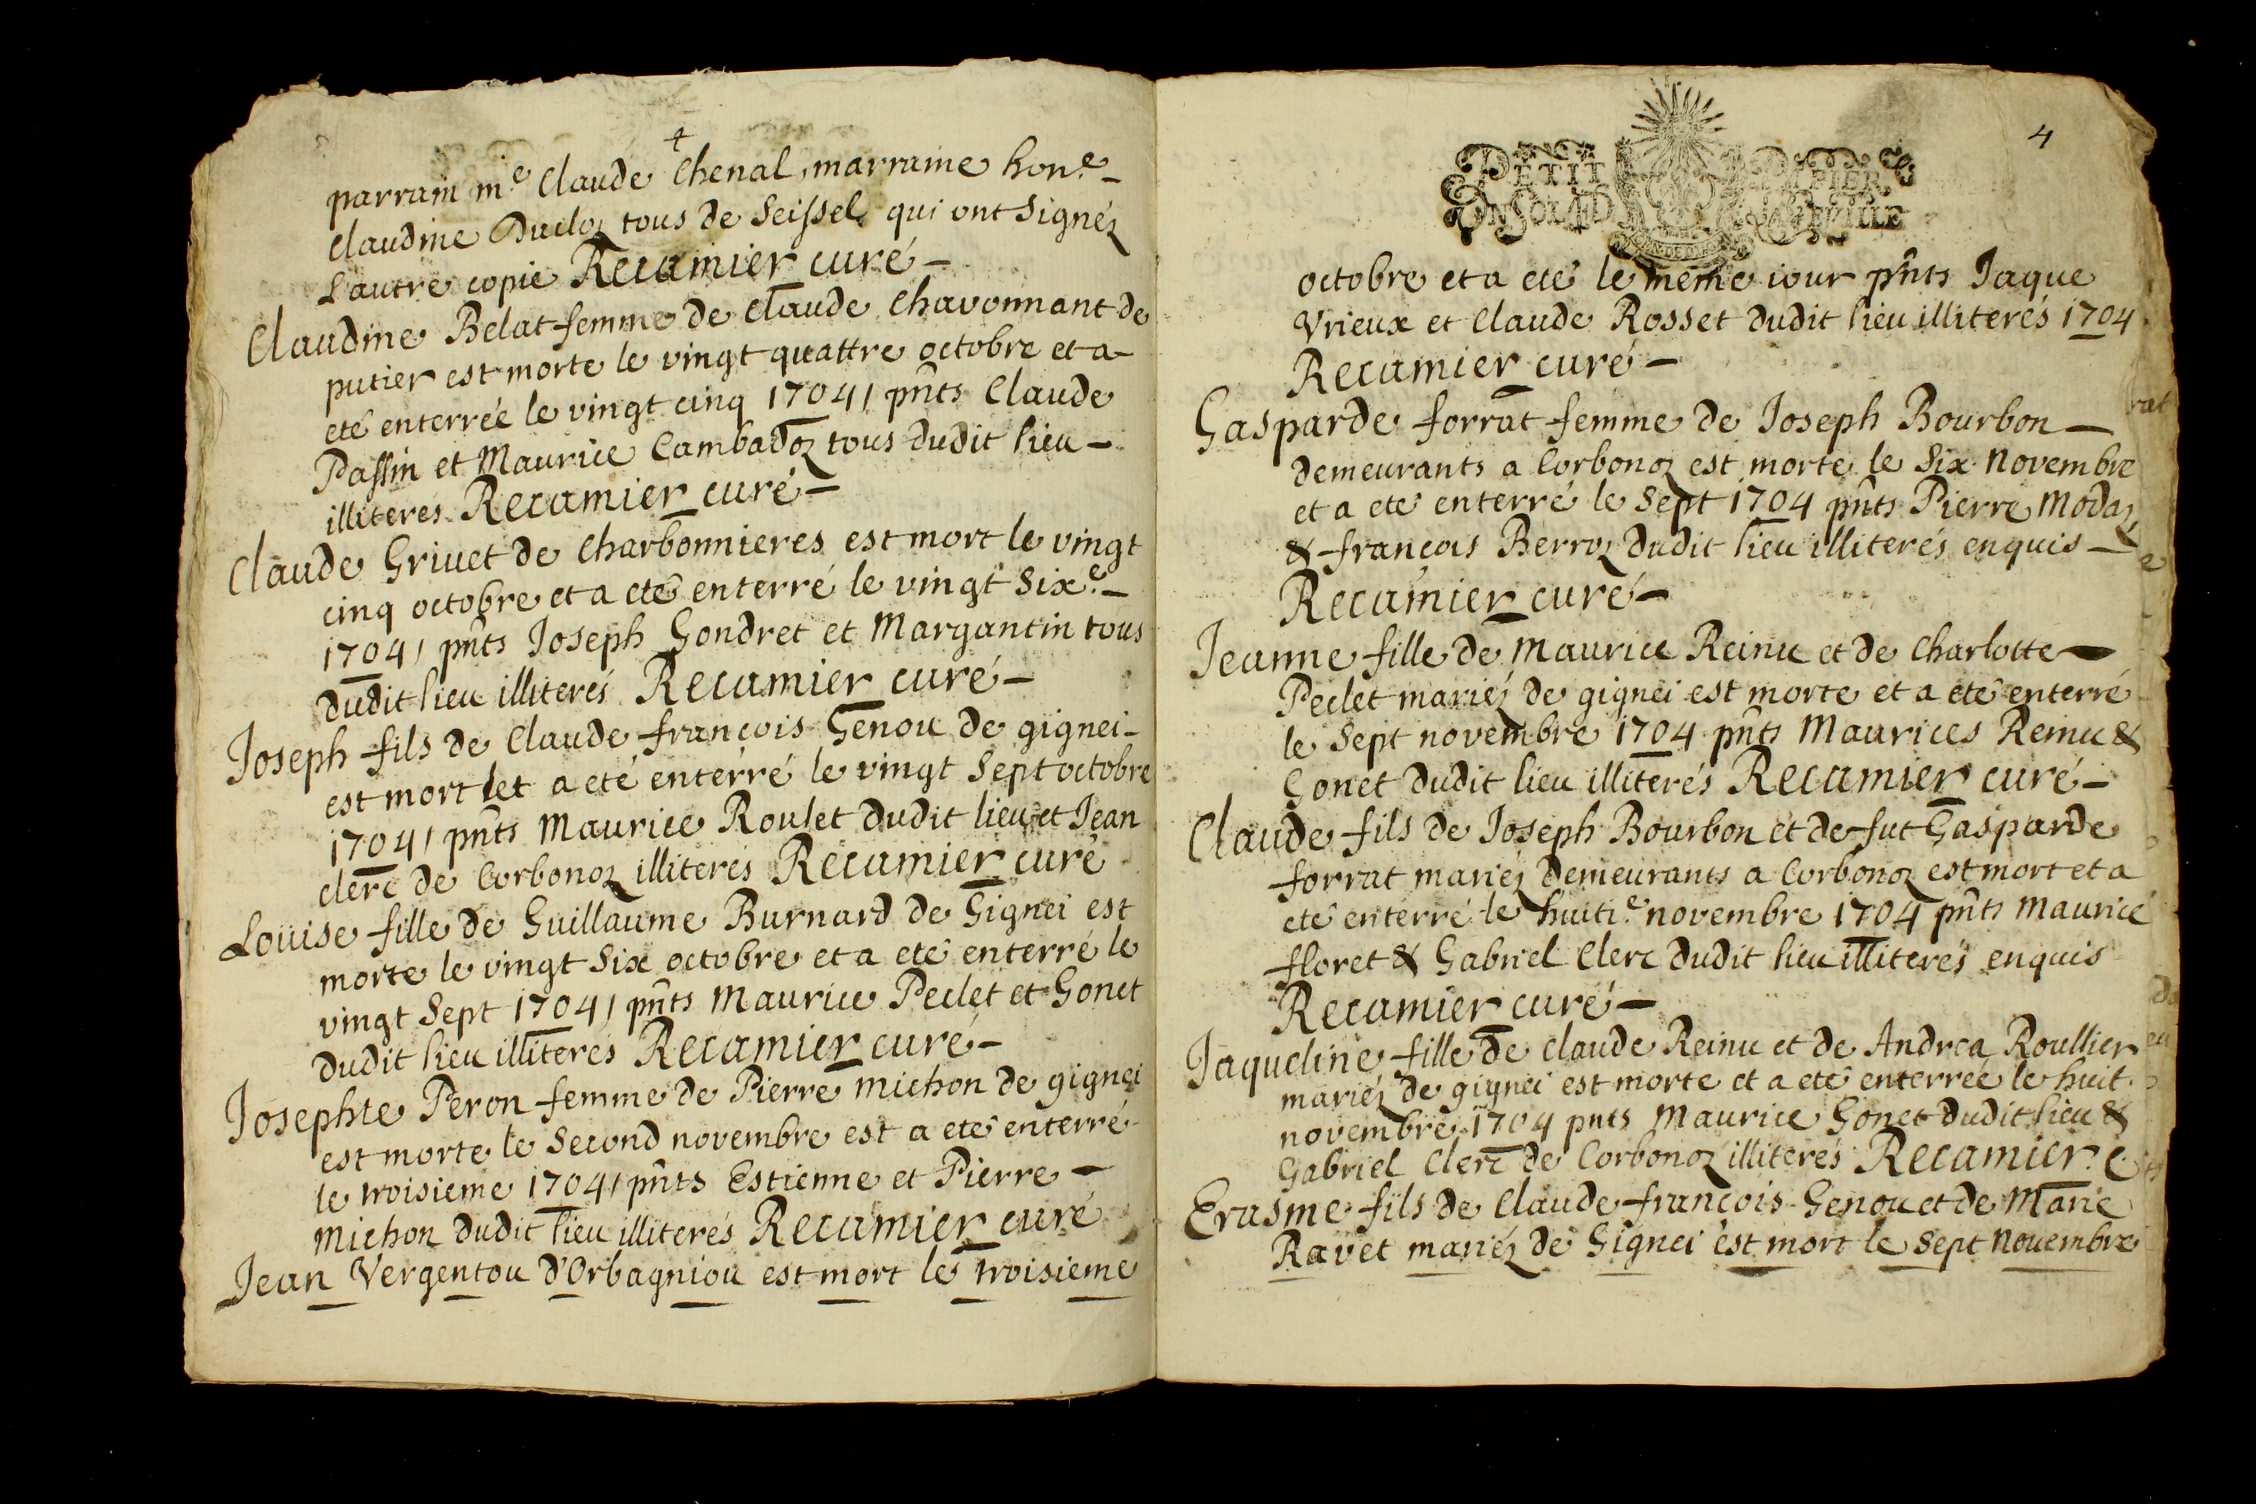 4
parrain m.e Claude Chenal, marraine hon.e –
Claudine Ducloz tous de Seissel qui ont signéz
L'autre copie Recamier curé –
Claudine Belat femme de Claude Chavonnant de
putier est morte le vingt quattre octobre et a –
eté enterrée le vingt cinq 1704, pnts Claude
Passin et Maurice Cambadoz tous dudit lieu –
illiterés Recamier curé –
Claude Grivet de Charbonnieres est mort le vingt
cinq octobre et a eté enterré le vingt six.e –
1704, pnts Joseph Gondret et Margantin tous
dudit lieu illiterés Recamier curé –
Joseph fils de Claude françois Genou de gignei –
est mort et a eté enterré le vingt sept octobre
1704, pnts Maurice Roulet dudit lieu et Jean
clerc de Corbonoz illiterés Recamier curé
Louise fille de Guillaume Burnard de Gignei est
morte le vingt six octobre et a eté enterré le
vingt sept 1704, pnts Maurice Peclet et Gonet
dudit lieu illiterés Recamier curé –
Josephte Peron femme de Pierre michon de gignei
est morte le second novembre est a eté enterré
le troisieme 1704, pnts Estienne et Pierre –
Michon dudit lieu illiterés Recamier curé
Jean Vergentou d'Orbagniou est mort le troisieme
4
PETIT PAPIER
UN SOL LA FEUILLE
octobre et a eté le meme iour pnts Jaque
Vrieux et Claude Rosset dudit lieu illiterés 1704
Recamier curé –
Gasparde forrat femme de Joseph Bourbon –
demeurants a Corbonoz est morte le six novembre
et a eté enterré le sept 1704 pnts Pierre Modaz
& françois Berroz dudit lieu illiterés enquis –
Recamier curé –
Jeanne fille de Maurice Reinu et de Charlotte –
Peclet mariéz de gignei est morte et a eté enterré
le sept novembre 1704 pnts Maurices Reinu &
Gonet dudit lieu illiterés Recamier curé –
Claude fils de Joseph Bourbon et de fut Gasparde
forrat mariéz demeurants a Corbonoz est mort et a
eté enterré le huiti.e novembre 1704 pnts Maurice
floret & Gabriel Clerc dudit lieu illiterés enquis
Recamier curé –
Jaqueline fille de Claude Reinu et de Andrea Roullier
mariéz de gignei est morte et a eté enterrée le huit
novembre 1704 pnts Maurice Gonet dudit lieu &
Gabriel Clerc de Corbonoz illiterés Recamier C
Erasme fils de Claude françois Genou et de Marie
Ravet mariéz de Gignei est mort le sept Novembre